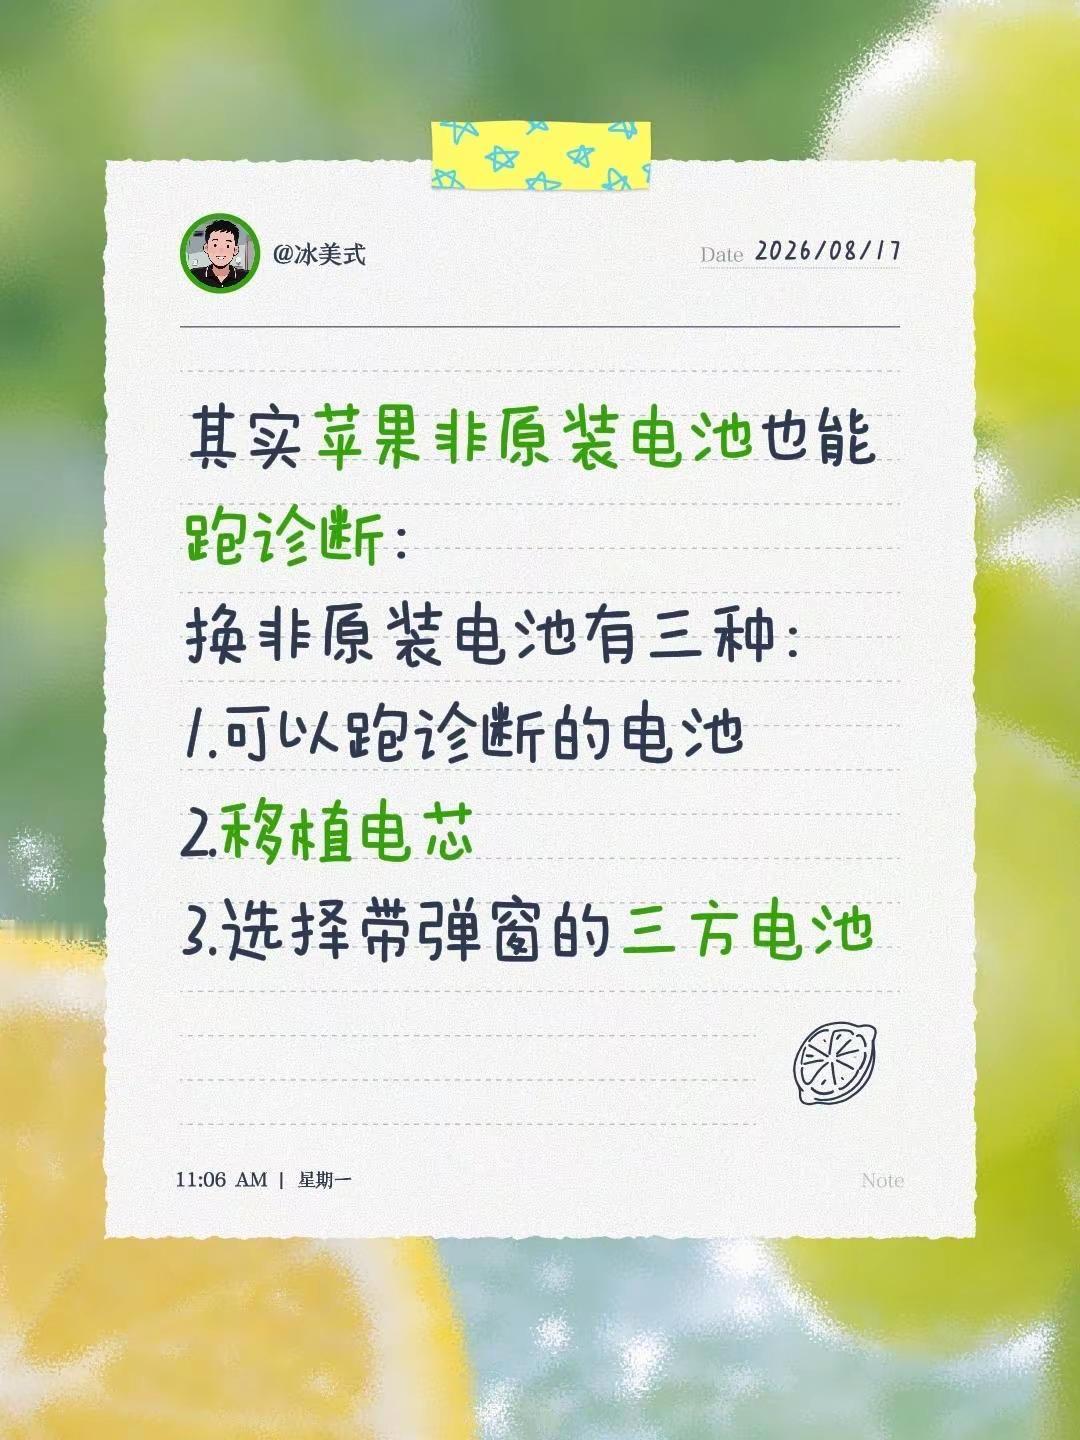 @冰美式
Date 2026/08/17
其实苹果非原装电池也能
跑诊断：
换非原装电池有三种：
1.可以跑诊断的电池
2.移植电芯
3.选择带弹窗的三方电池
11:06 AM | 星期一
Note